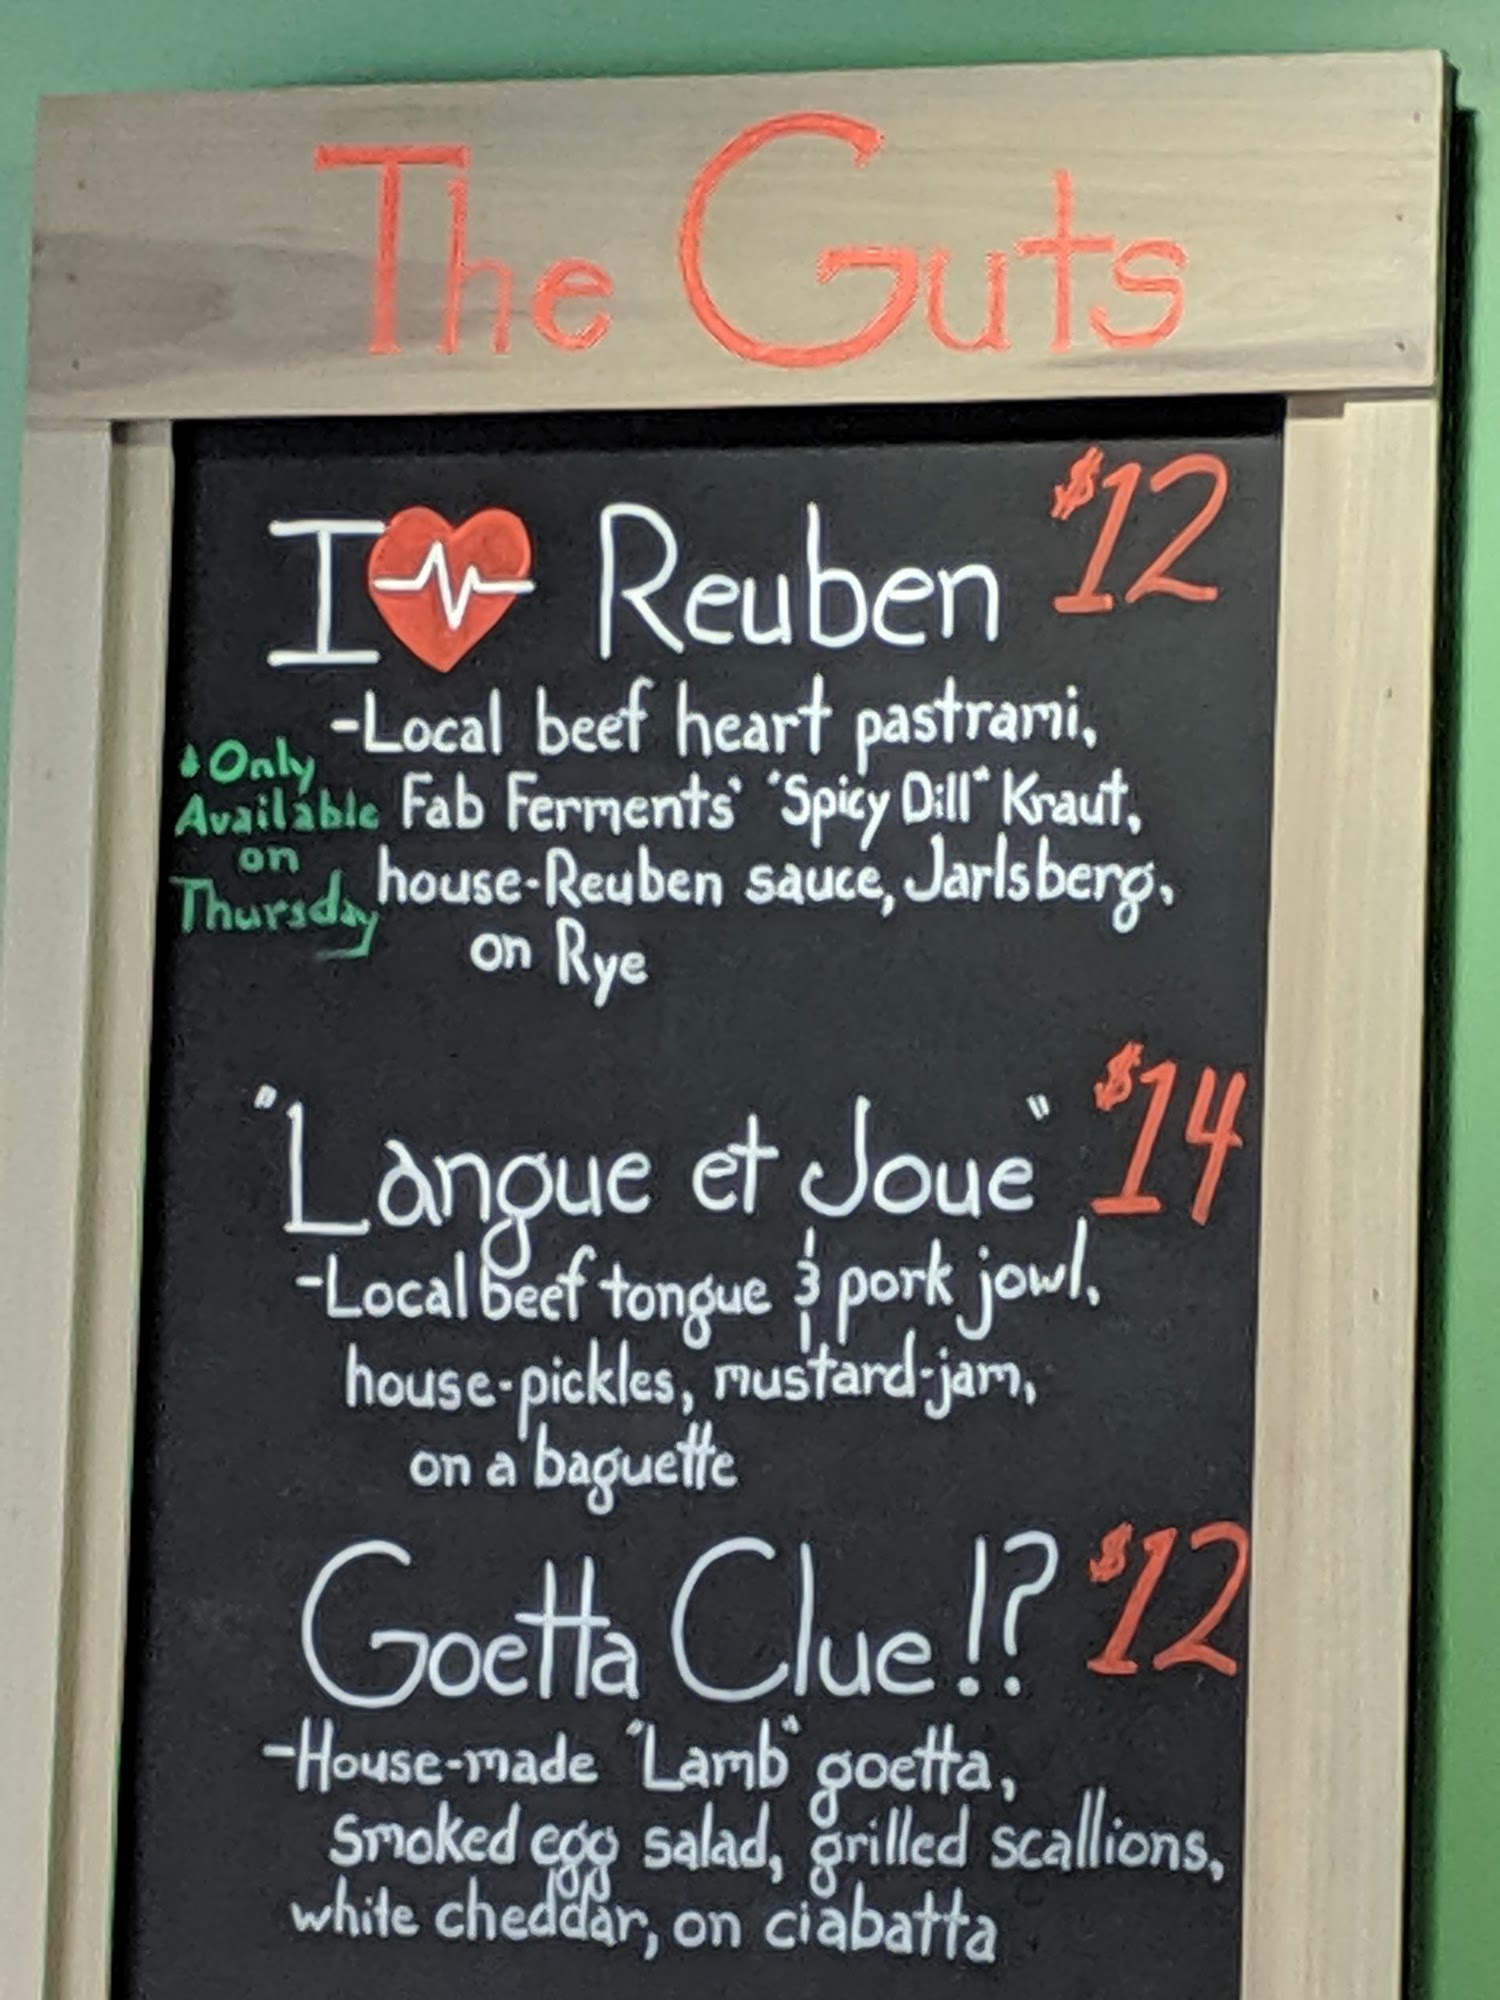 The Guts
I ❤ Reuben $12
-Local beef heart pastrami,
Fab Ferments' "Spicy Dill" Kraut,
house-Reuben sauce, Jarlsberg,
on Rye
Only
Available
on
Thursday
"Langue et Joue" $14
-Local beef tongue & pork jowl,
house-pickles, mustard-jam,
on a baguette
Goetta Clue!? $12
-House-made "Lamb" goetta,
smoked egg salad, grilled scallions,
white cheddar, on ciabatta